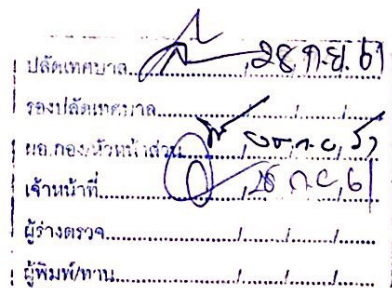 ปลัดเทศบาล............/28 ก.ย. 61
รองปลัดเทศบาล............/......./.......
ผอ.กอง/หัวหน้าส่วน
เจ้าหน้าที่............/28 ก.ย. 61
ผู้ร่าง/ตรวจ............/......./.......
ผู้พิมพ์/ทาน............/......./.......